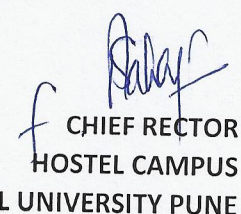 CHIEF RECTOR
HOSTEL CAMPUS
L UNIVERSITY PUNE